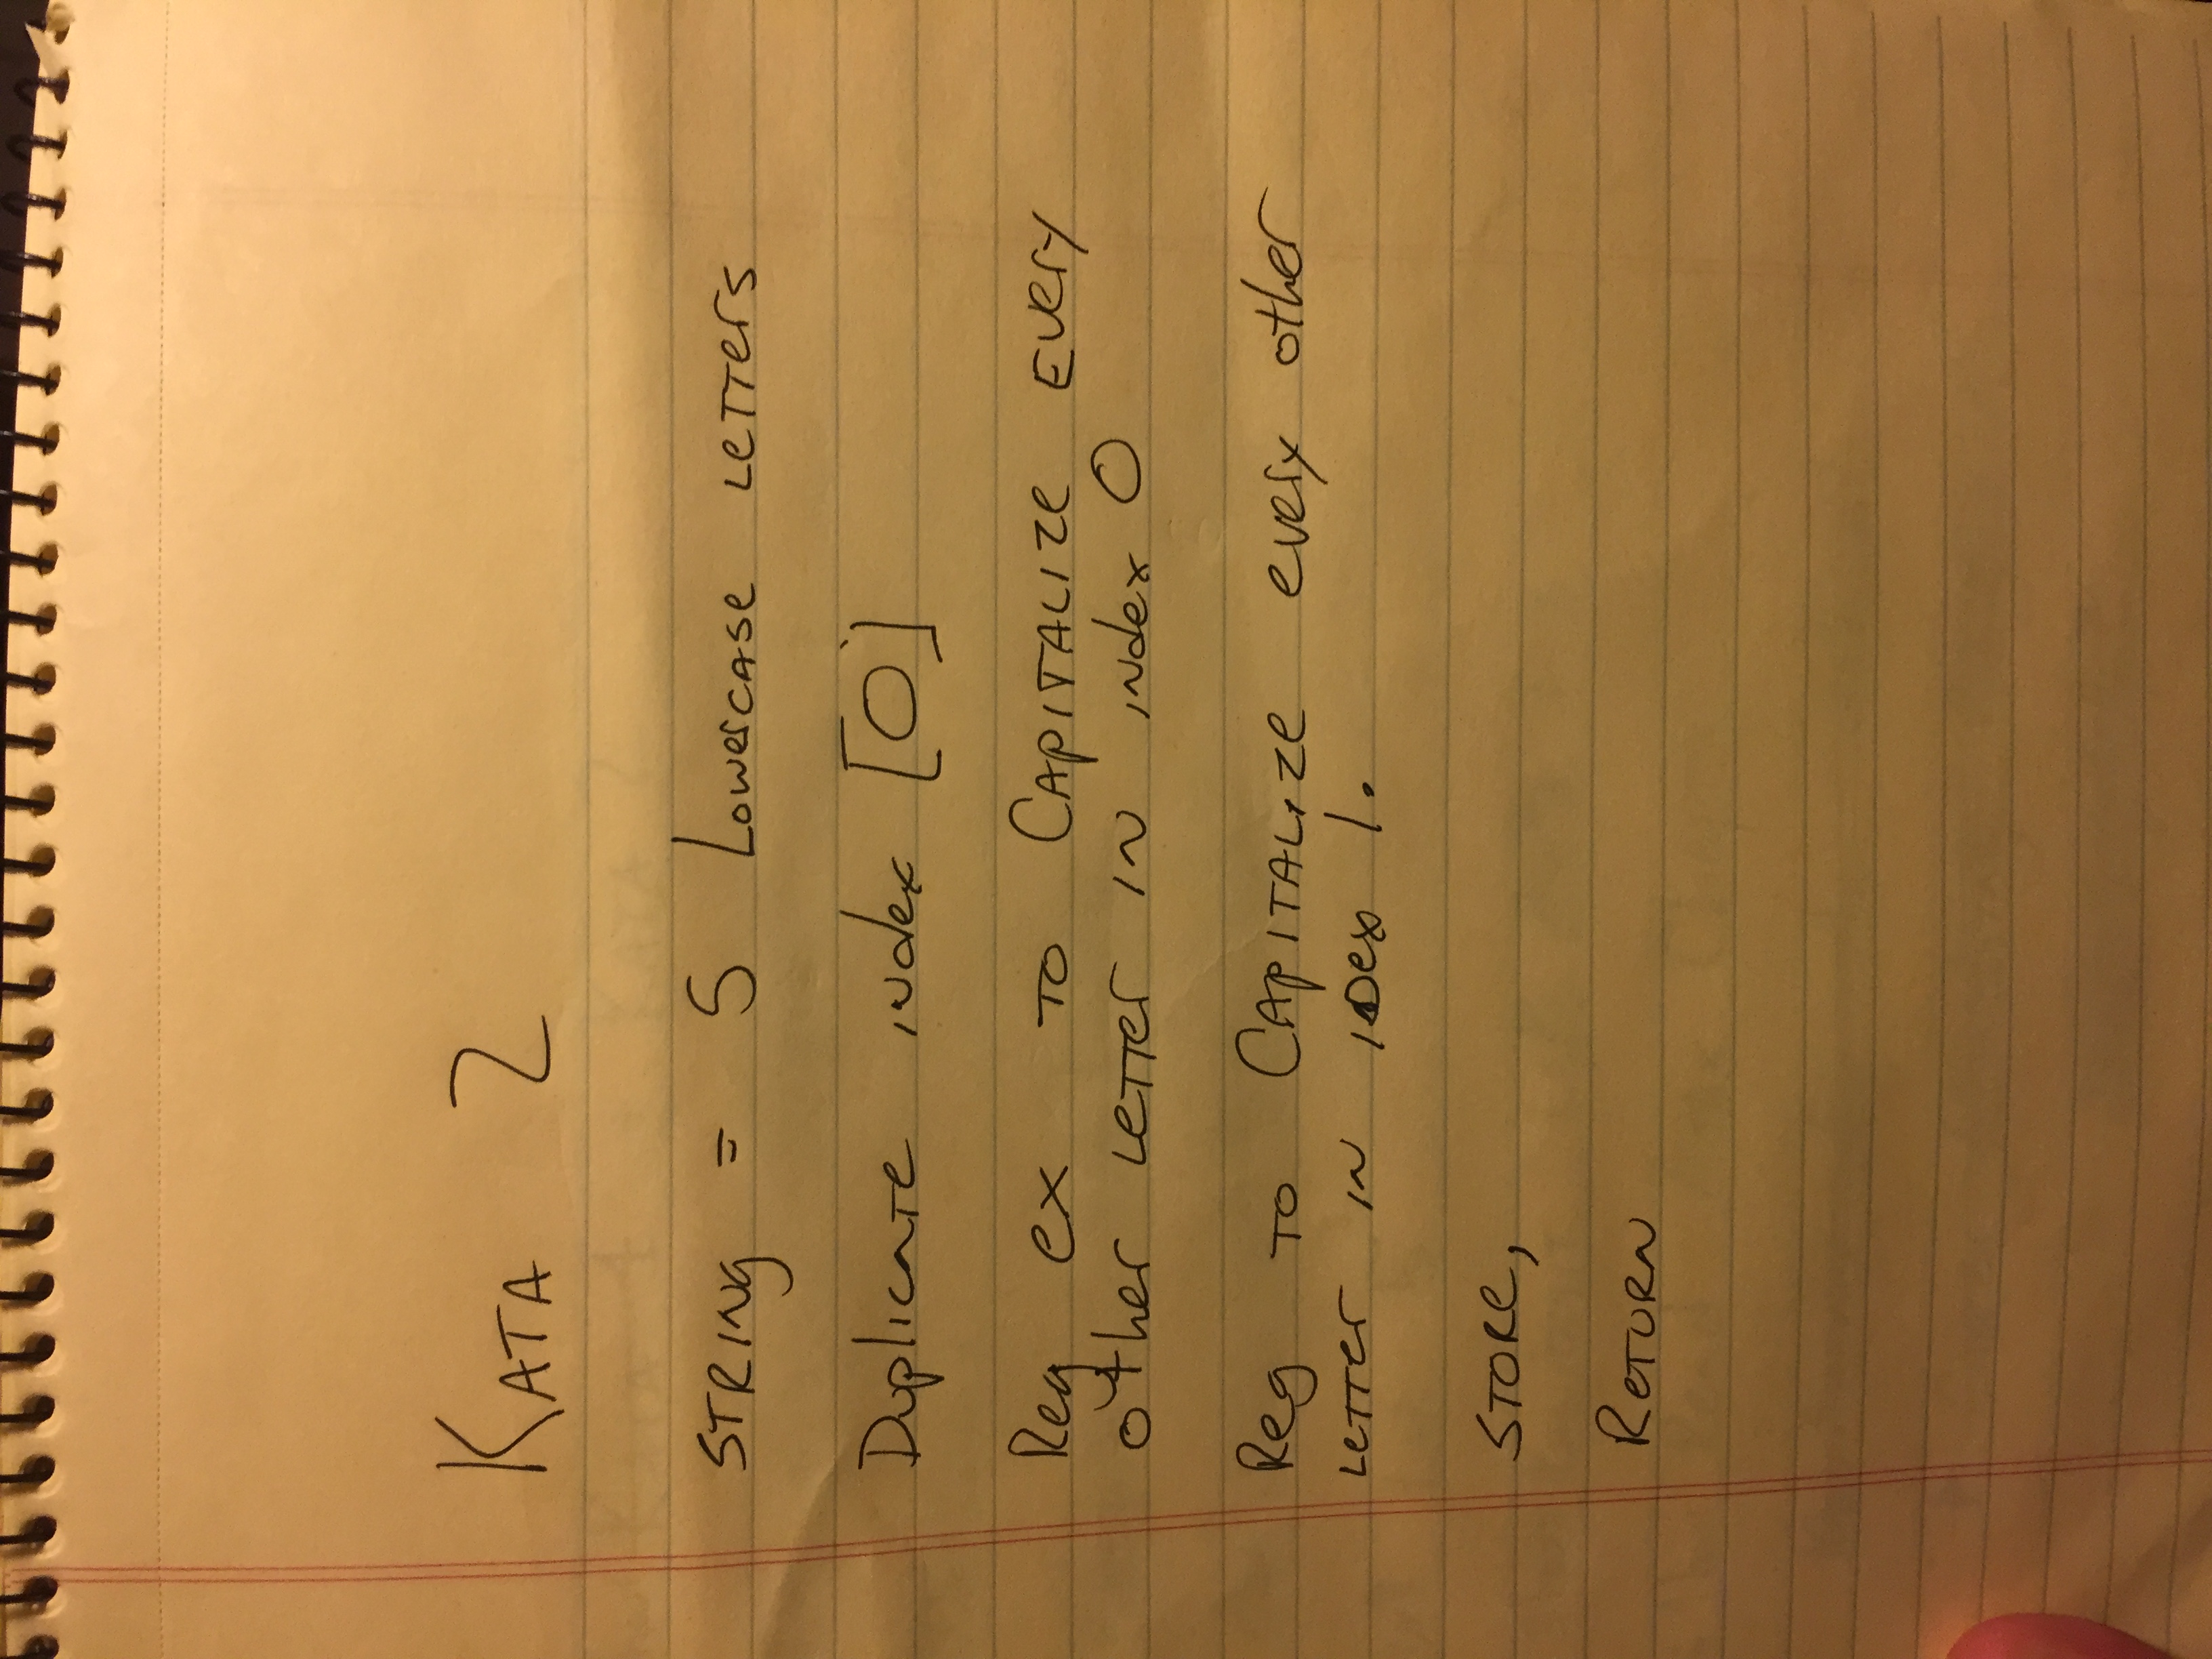 KATA 2
STRING = 5 Lowercase Letters
Duplicate index [0]
Reg ex to Capitalize every
other letter in index 0
Reg to Capitalize every other
letter in idex 1.
STORE,
RETURN